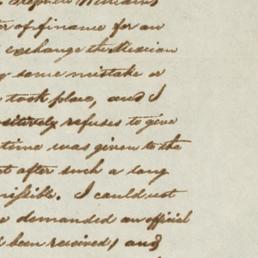 er of finance for an
exchange the Mexican
some mistake or
took place, and I
positively refuses to give
time was given to the
t after such a long
missible. I could not
demanded an official
d been received, and